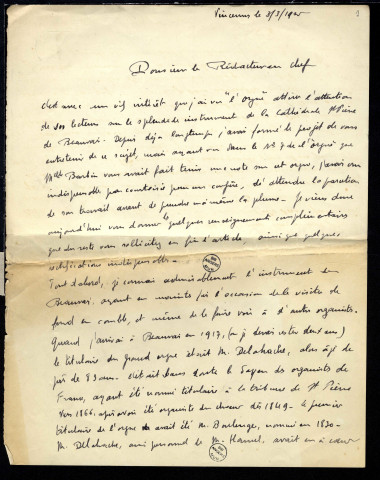 Vincennes le 3/3/1925
Monsieur le Rédacteur en chef
C'est avec un vif intérêt que j'ai vu "l'orgue" attirer l'attention
de ses lecteurs sur le splendide instrument de la Cathédrale St Pierre
de Beauvais. Depuis déjà longtemps j'avais formé le projet de vous
entretenir de ce sujet, mais ayant vu dans le N° 7 de l'orgue que
Melle Barbin vous avait fait tenir une note sur cet orgue, j'avais cru
indispensable par courtoisie pour un confrère, d'attendre la parution
de son travail avant de prendre moi-même la plume. Je viens donc
aujourd'hui vous donner quelques renseignements complémentaires
que du reste vous sollicitez en fin d'article ainsi que quelques
rectifications indispensables.
Tout d'abord, je connais admirablement l'instrument de
Beauvais, ayant eu maintes fois l'occasion de le visiter de
fond en comble, et même de le faire voir à d'autres organistes.
Quand j'arrivai à Beauvais en 1913, (où je devais rester deux ans)
le titulaire du grand orgue était M. Delahache, alors âgé de
près de 83 ans. C'était sans doute le doyen des organistes de
France, ayant été nommé titulaire à la tribune de St Pierre
vers 1866, après avoir été organiste du chœur dès 1849. Le premier
titulaire de l'orgue avait été M. Boulenger, nommé en 1830.
M. Delahache, ami personnel de M. Hamel, avait eu à cœur